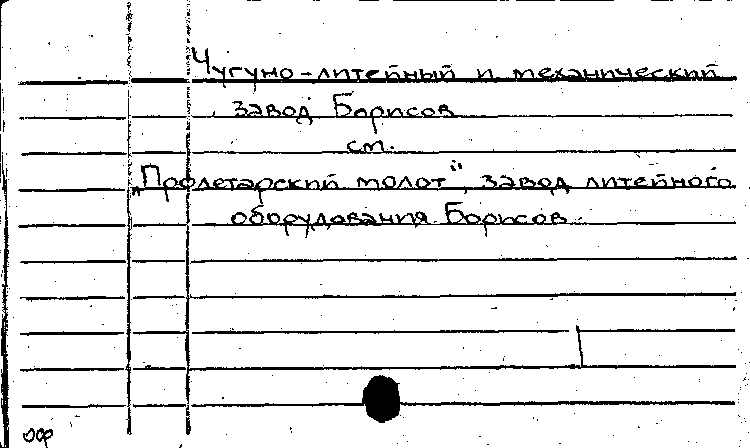 Чугуно-литейный и механический
завод Борисов
см.
„Пролетарский молот", завод литейного
оборудования Борисов.